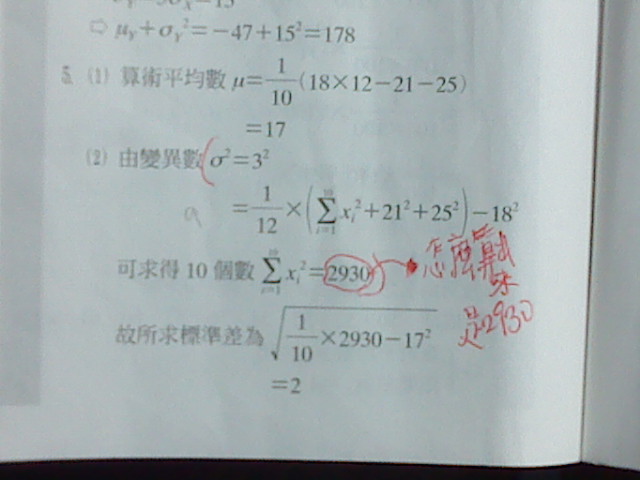 ⇨ μY+σY²=−47+15²=178
5. (1) 算術平均數 μ=1/10(18×12−21−25)
=17
(2) 由變異數 σ²=3²
=1/12×(∑_{i=1}^{10} xi²+21²+25²)−18²
可求得 10 個數 ∑_{i=1}^{10} xi²=2930
怎麼算出來
是2930
故所求標準差為 √(1/10×2930−17²)
=2